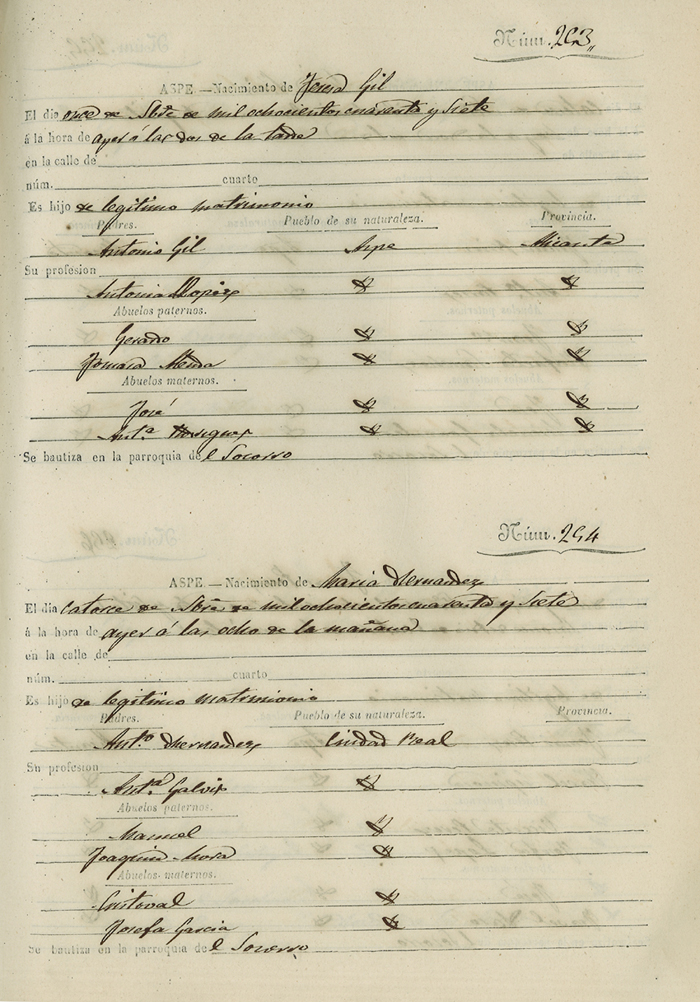 Núm. 293
ASPE.—Nacimiento de Teresa Gil
El dia once de Sbre de mil ochocientos cuarenta y siete
á la hora de ayer á las dos de la tarde
en la calle de
núm. cuarto
Es hijo de legitimo matrimonio
Padres. Pueblo de su naturaleza. Provincia.
Antonio Gil Aspe Alicante
Su profesion
Antonia Lopez
Abuelos paternos.
Gerardo
Tomasa
Abuelos maternos.
José
Ant.a
Se bautiza en la parroquia del Socorro
Núm. 294
ASPE.—Nacimiento de Maria Hernandez
El dia catorce de Sbre de mil ochocientos cuarenta y siete
á la hora de ayer á las ocho de la mañana
en la calle de
núm. cuarto
Es hijo de legitimo matrimonio
Padres. Pueblo de su naturaleza. Provincia.
Ant.o Hernandez Ciudad Real
Su profesion
Ant.a Galvis
Abuelos paternos.
Manuel
Joaquina Mora
Abuelos maternos.
Cristoval
Josefa Garcia
Se bautiza en la parroquia del Socorro